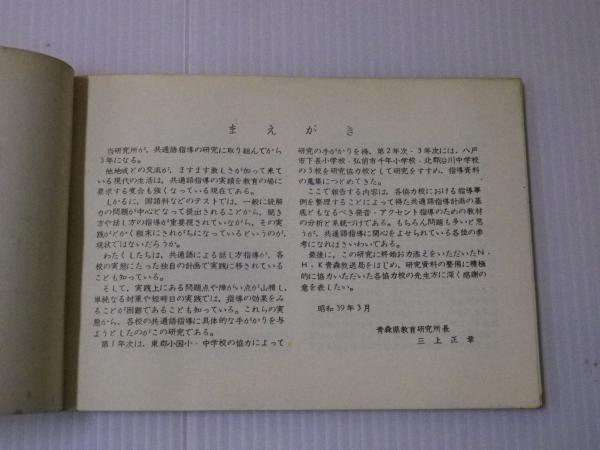 まえがき
当研究所が、共通語指導の研究に取り組んでから
3年になる。
他地域との交流が、ますます激しさが加って来て
いる現代の生活は、共通語指導の実績を教育の場に
要求する度合も強くなっている現在である。
しかるに、国語科などのテストでは、一般に読解
力の問題が中心となって提出されることから、聞き
方や話し方の指導が重要視されていながら、その実
践がとかく粗末にされがちになっているというのが、
現状ではないだろうか。
わたくしたちは、共通語による話し方指導が、各
校の実態にたった独自の計画で実践に移されている
ことも知っている。
そして、実践上にある問題点や障がい点が山積し、
単純なる対策や短時日の実践では、指導の効果をみ
ることが困難であることも知っている。これらの実
態から、各校の共通語指導に具体的な手がかりを与
えようとしたのがこの研究である。
第1年次は、東郡小国小・中学校の協力によって
研究の手がかりを得、第2年次・3年次には、八戸
市下長小学校・弘前市千年小学校・北郡沿川中学校
の3校を研究協力校として研究をすすめ、指導資料
の蒐集につとめてきた。
ここで報告する内容は、各協力校における指導事
例を整理することによって得た共通語指導計画の基
底ともなるべき発音・アクセント指導のための教材
の分析と系統づけである。もちろん問題も多いと思
うが、共通語指導に関心をよせられている各位の参
考になればさいわいである。
最後に、この研究に終始お力添えをいただいたN・
H・K青森放送局をはじめ、研究資料の整備に積極
的に協力いただいた各協力校の先生方に深く感謝の
意を表したい。
昭和39年3月
青森県教育研究所長
三上正章